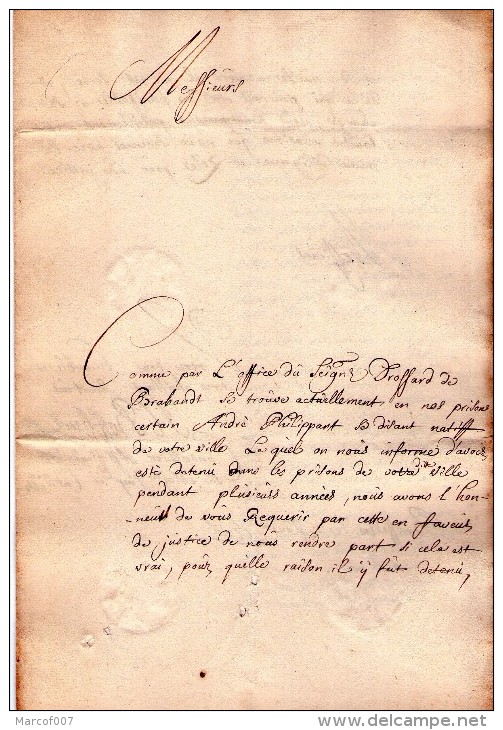 Messieurs
Comme par L'office du Seignr Drossard de
Brabandt se trouve actuellement en nos prisons
certain André Philippart se disant natiff
de votre ville Lequel on nous informe d'avoir
esté detenu dans les prisons de votre dite ville
pendant plusieurs années, nous avons l'hon-
-neur de vous Requerir par cette en faveur
de justice de nous rendre part si cela est
vrai, pour quelle raison il y fut detenu,
Marcof007
www.delcampe.net